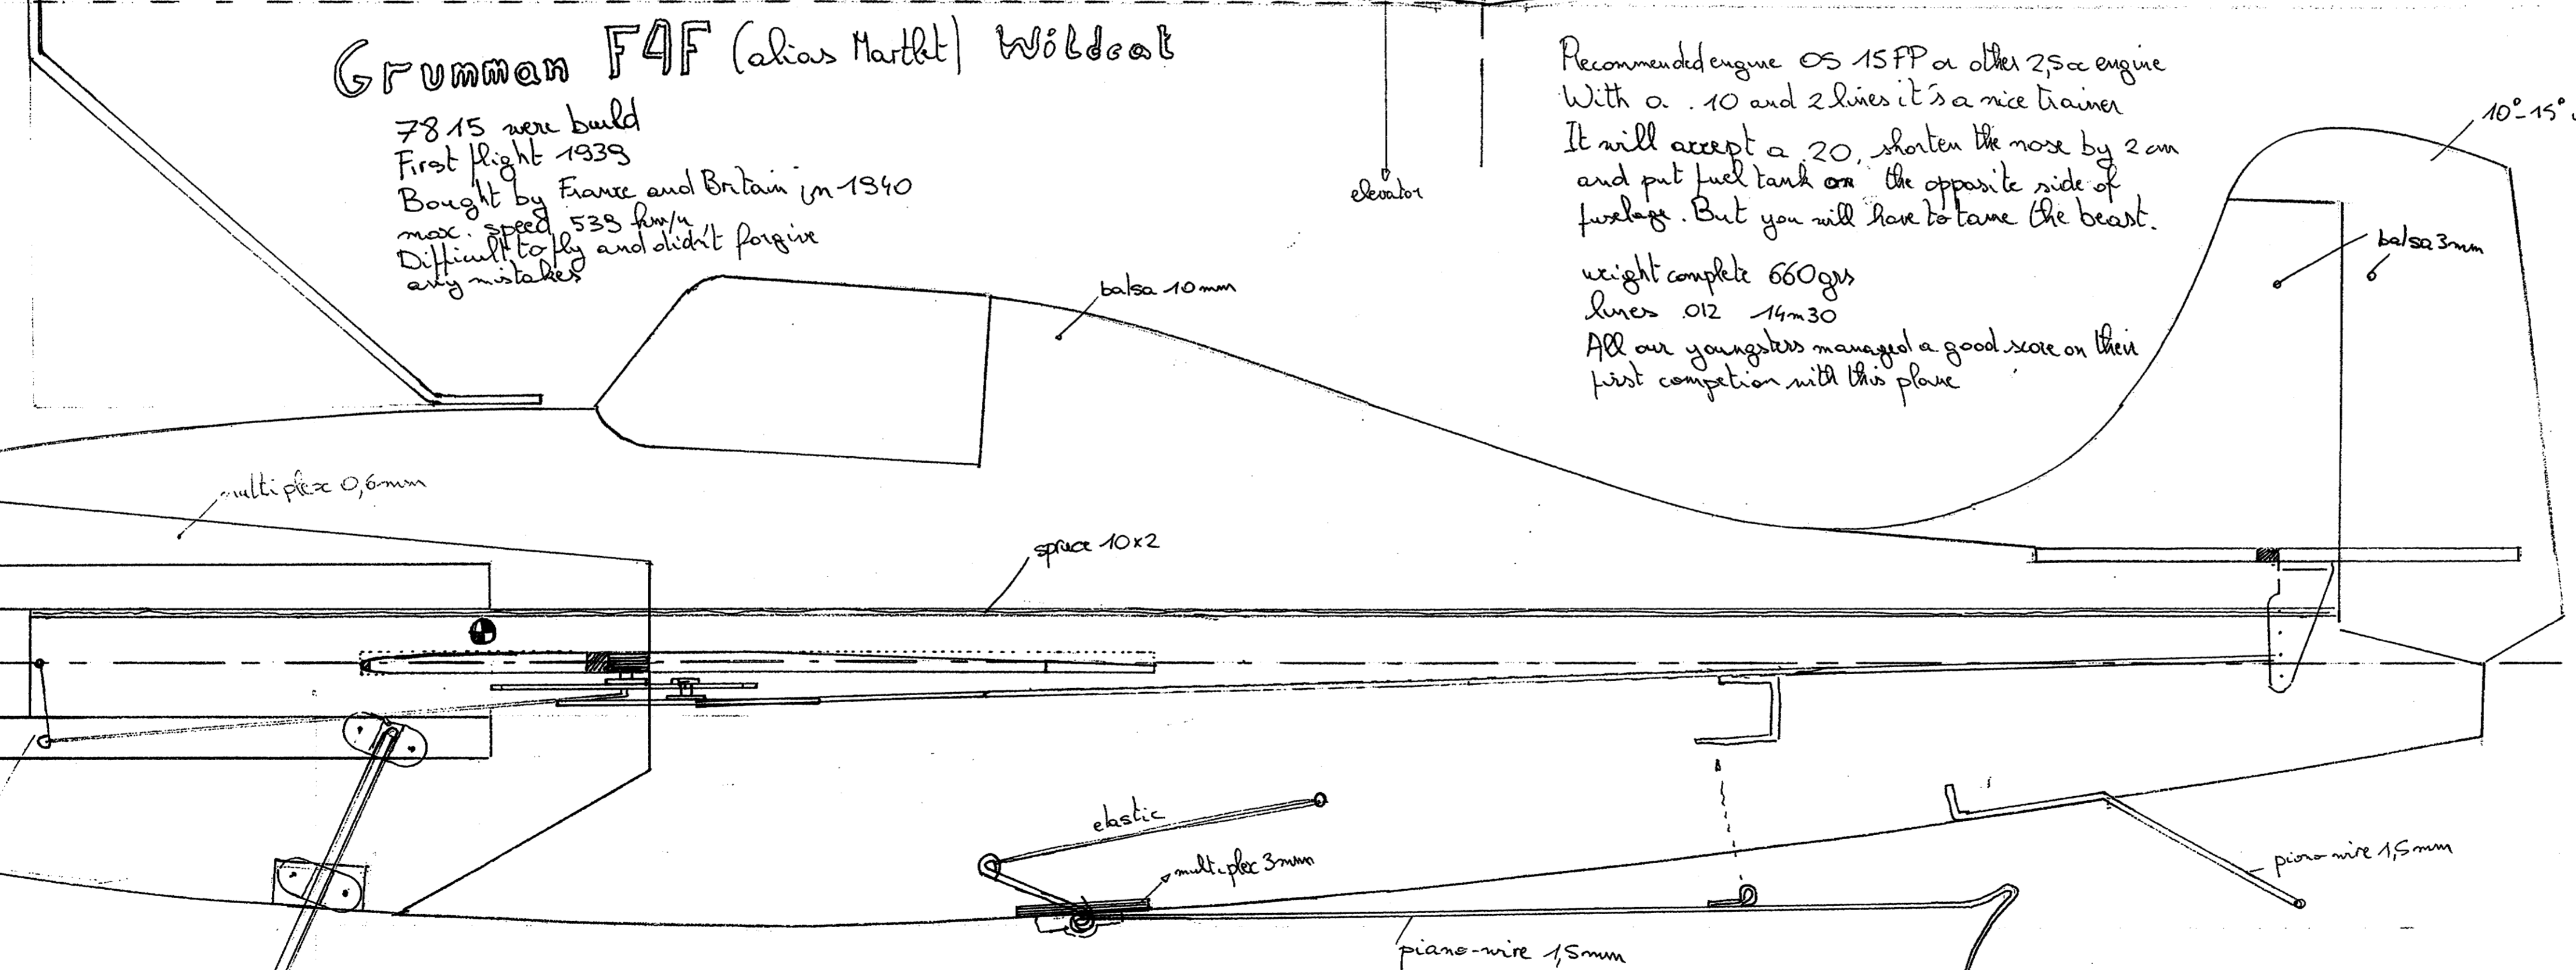 Grumman F4F (alias Martlet) Wildcat
7815 were build
First flight 1939
Bought by France and Britain in 1940
max. speed 539 km/u
Difficult to fly and didn't forgive
any mistakes
Recommended engine OS 15 FP or other 2,5cc engine
With a .10 and 2 lines it's a nice trainer
It will accept a .20, shorten the nose by 2 cm
and put fuel tank on the opposite side of
fuselage. But you will have to tame the beast.
weight complete 660grs
lines .012 14m30
All our youngsters managed a good score on their
first competion with this plane
elevator
10°-15°
balsa 3mm
balsa 10mm
multiplex 0,6mm
spruce 10x2
elastic
multiplex 3mm
piano-wire 1,5mm
piano-wire 1,5mm